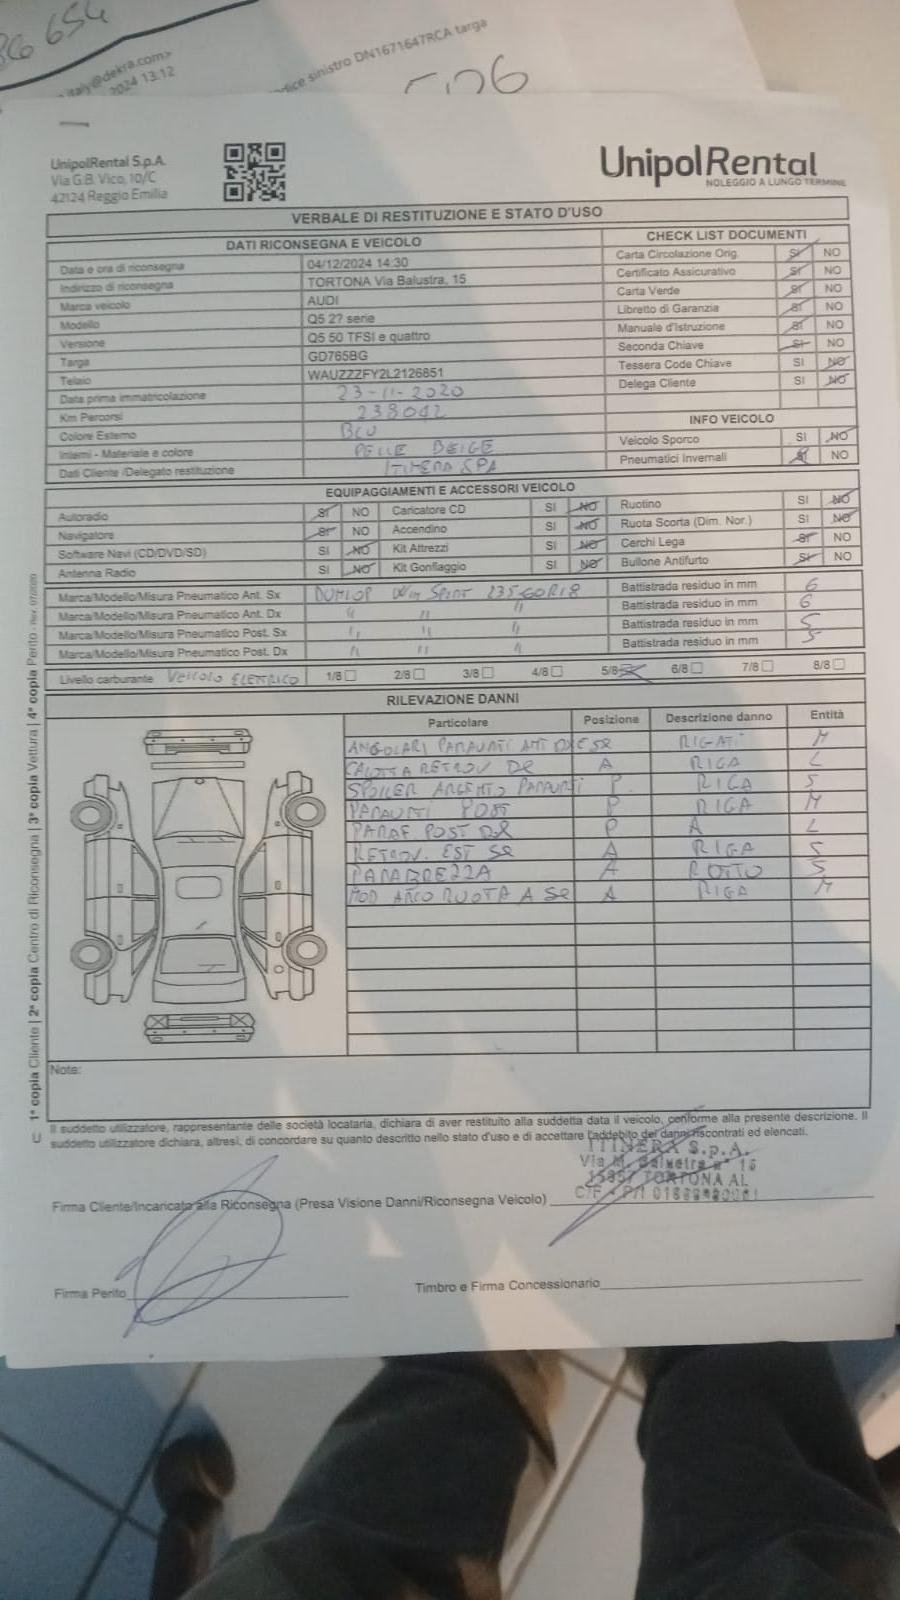 86 654
italy@dekra.com>
2024 13:12
dice sinistro DN1671647RCA targa
506
UnipolRental S.p.A.
Via G.B. Vico, 10/C
42124 Reggio Emilia
UnipolRental
NOLEGGIO A LUNGO TERMINE
VERBALE DI RESTITUZIONE E STATO D'USO
DATI RICONSEGNA E VEICOLO
Data e ora di riconsegna 04/12/2024 14:30
Indirizzo di riconsegna TORTONA Via Balustra, 15
Marca veicolo AUDI
Modello Q5 2? serie
Versione Q5 50 TFSI e quattro
Targa GD765BG
Telaio WAUZZZFY2L2126851
Data prima immatricolazione 23-11-2020
Km Percorsi 238042
Colore Esterno BLU
Interni - Materiale e colore PELLE BEIGE
Dati Cliente /Delegato restituzione ITINERA SPA
CHECK LIST DOCUMENTI
Carta Circolazione Orig. SI NO
Certificato Assicurativo SI NO
Carta Verde SI NO
Libretto di Garanzia SI NO
Manuale d'Istruzione SI NO
Seconda Chiave SI NO
Tessera Code Chiave SI NO
Delega Cliente SI NO
INFO VEICOLO
Veicolo Sporco SI NO
Pneumatici Invernali SI NO
EQUIPAGGIAMENTI E ACCESSORI VEICOLO
Autoradio SI NO Caricatore CD SI NO Ruotino SI NO
Navigatore SI NO Accendino SI NO Ruota Scorta (Dim. Nor.) SI NO
Software Navi (CD/DVD/SD) SI NO Kit Attrezzi SI NO Cerchi Lega SI NO
Antenna Radio SI NO Kit Gonfiaggio SI NO Bullone Antifurto SI NO
Marca/Modello/Misura Pneumatico Ant. Sx DUNLOP Win Sport 235 60 R18 Battistrada residuo in mm 6
Marca/Modello/Misura Pneumatico Ant. Dx " " " Battistrada residuo in mm 6
Marca/Modello/Misura Pneumatico Post. Sx " " " Battistrada residuo in mm 5
Marca/Modello/Misura Pneumatico Post. Dx " " " Battistrada residuo in mm 5
Livello carburante VEICOLO ELETTRICO 1/8 2/8 3/8 4/8 5/8 6/8 7/8 8/8
RILEVAZIONE DANNI
Particolare Posizione Descrizione danno Entità
ANGOLARI PARAURTI ANT DX E SX RIGATI M
CALOTTA RETROV DX A RIGA L
SPOILER ARGENTO PARAURTI P RIGA S
PARAURTI POST P RIGA M
PARAF POST DX P A L
RETROV. EST SX A RIGA S
PARABREZZA A ROTTO S
MOD ARCO RUOTA A SX A RIGA M
Note:
Il suddetto utilizzatore, rappresentante delle società locataria, dichiara di aver restituito alla suddetta data il veicolo, conforme alla presente descrizione. Il
suddetto utilizzatore dichiara, altresì, di concordare su quanto descritto nello stato d'uso e di accettare l'addebito dei danni riscontrati ed elencati.
ITINERA S.p.A.
Via M. Balustra n° 15
15057 TORTONA AL
Firma Cliente/Incaricato alla Riconsegna (Presa Visione Danni/Riconsegna Veicolo)
Firma Perito
Timbro e Firma Concessionario
1ª copia Cliente | 2ª copia Centro di Riconsegna | 3ª copia Vettura | 4ª copia Perito